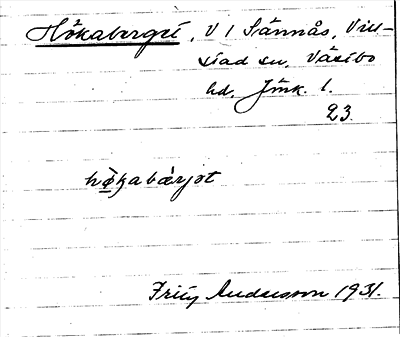 Hökaberget, V 1 Sännås, Vill-
stad sn, Västbo
hd, Jönk. l.
23.
hö̀kabærjət
Fritz Andersson 1931.